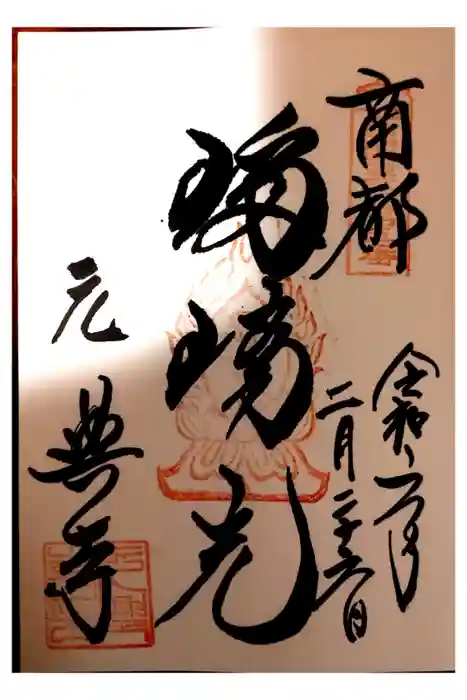 南都
令和二年
二月二十六日
瑠璃光
元興寺